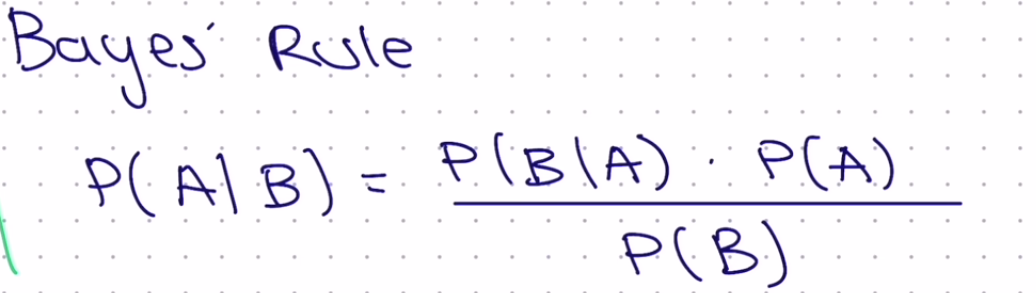 Bayes' Rule
P(A|B) = P(B|A) · P(A) / P(B)